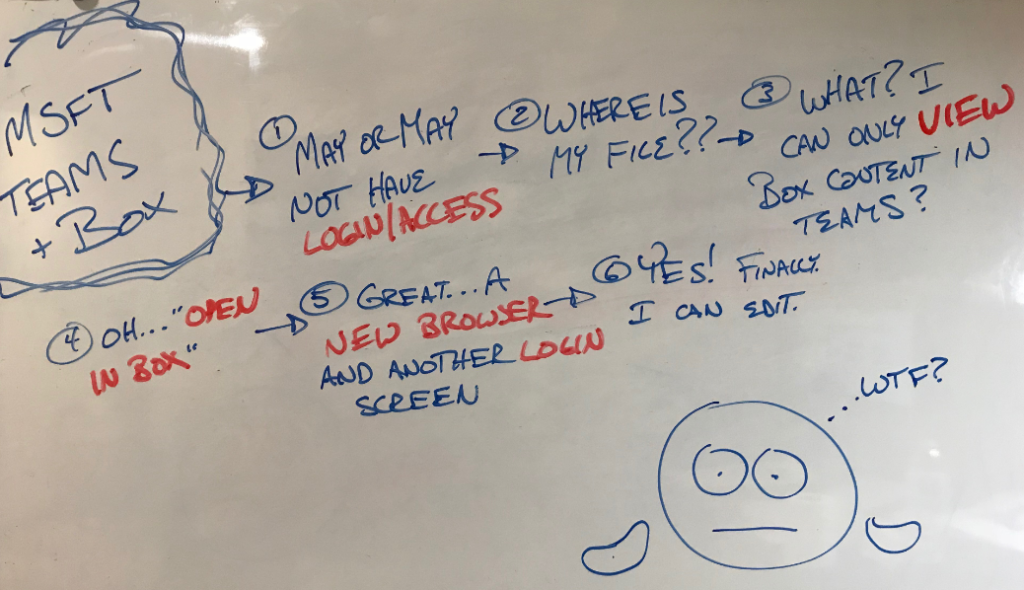 MSFT
TEAMS
+ BOX
① MAY OR MAY
NOT HAVE
LOGIN/ACCESS
② WHERE IS
MY FILE??
③ WHAT? I
CAN ONLY VIEW
BOX CONTENT IN
TEAMS?
④ OH..."OPEN
IN BOX"
⑤ GREAT...A
NEW BROWSER
AND ANOTHER LOGIN
SCREEN
⑥ YES! FINALLY.
I CAN EDIT.
...WTF?